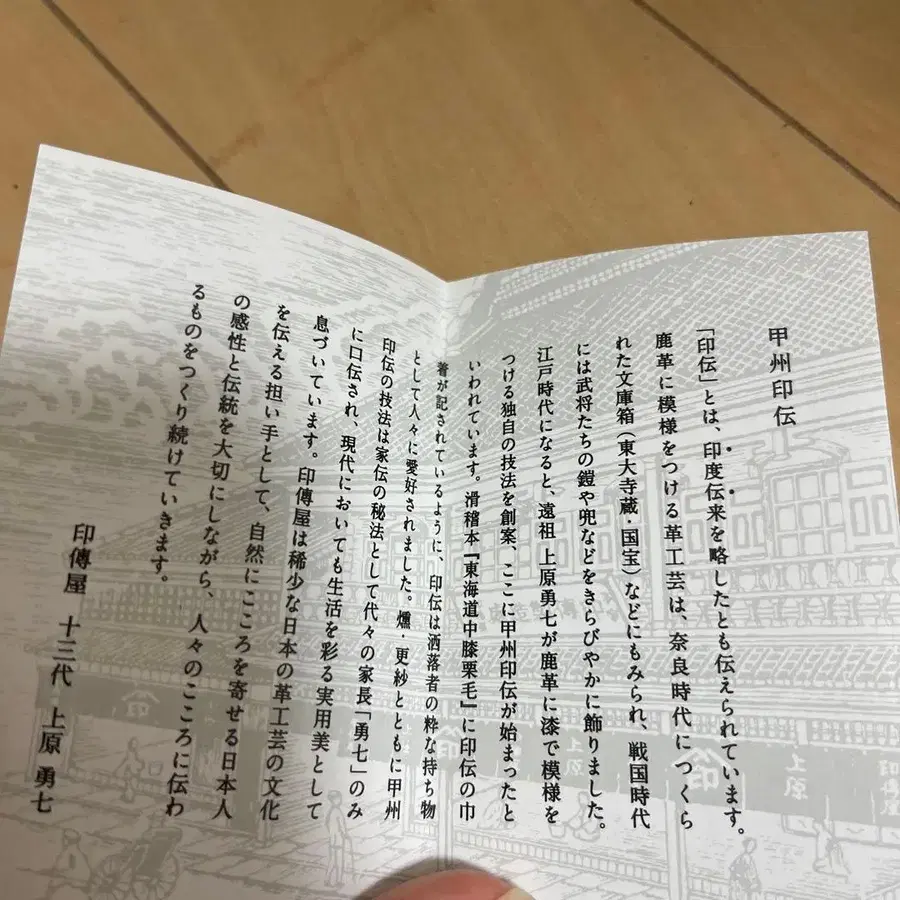 甲州印伝
「印伝」とは、印度伝来を略したとも伝えられています。
鹿革に模様をつける革工芸は、奈良時代につくら
れた文庫箱（東大寺蔵・国宝）などにもみられ、戦国時代
には武将たちの鎧や兜などをきらびやかに飾りました。
江戸時代になると、遠祖 上原勇七が鹿革に漆で模様を
つける独自の技法を創案、ここに甲州印伝が始まったと
いわれています。滑稽本『東海道中膝栗毛』に印伝の巾
着が記されているように、印伝は洒落者の粋な持ち物
として人々に愛好されました。燻・更紗とともに甲州
印伝の技法は家伝の秘法として代々の家長「勇七」のみ
に口伝され、現代においても生活を彩る実用美として
息づいています。印傳屋は稀少な日本の革工芸の文化
を伝える担い手として、自然にこころを寄せる日本人
の感性と伝統を大切にしながら、人々のこころに伝わ
るものをつくり続けていきます。
印傳屋 十三代 上原 勇七
上原
上原